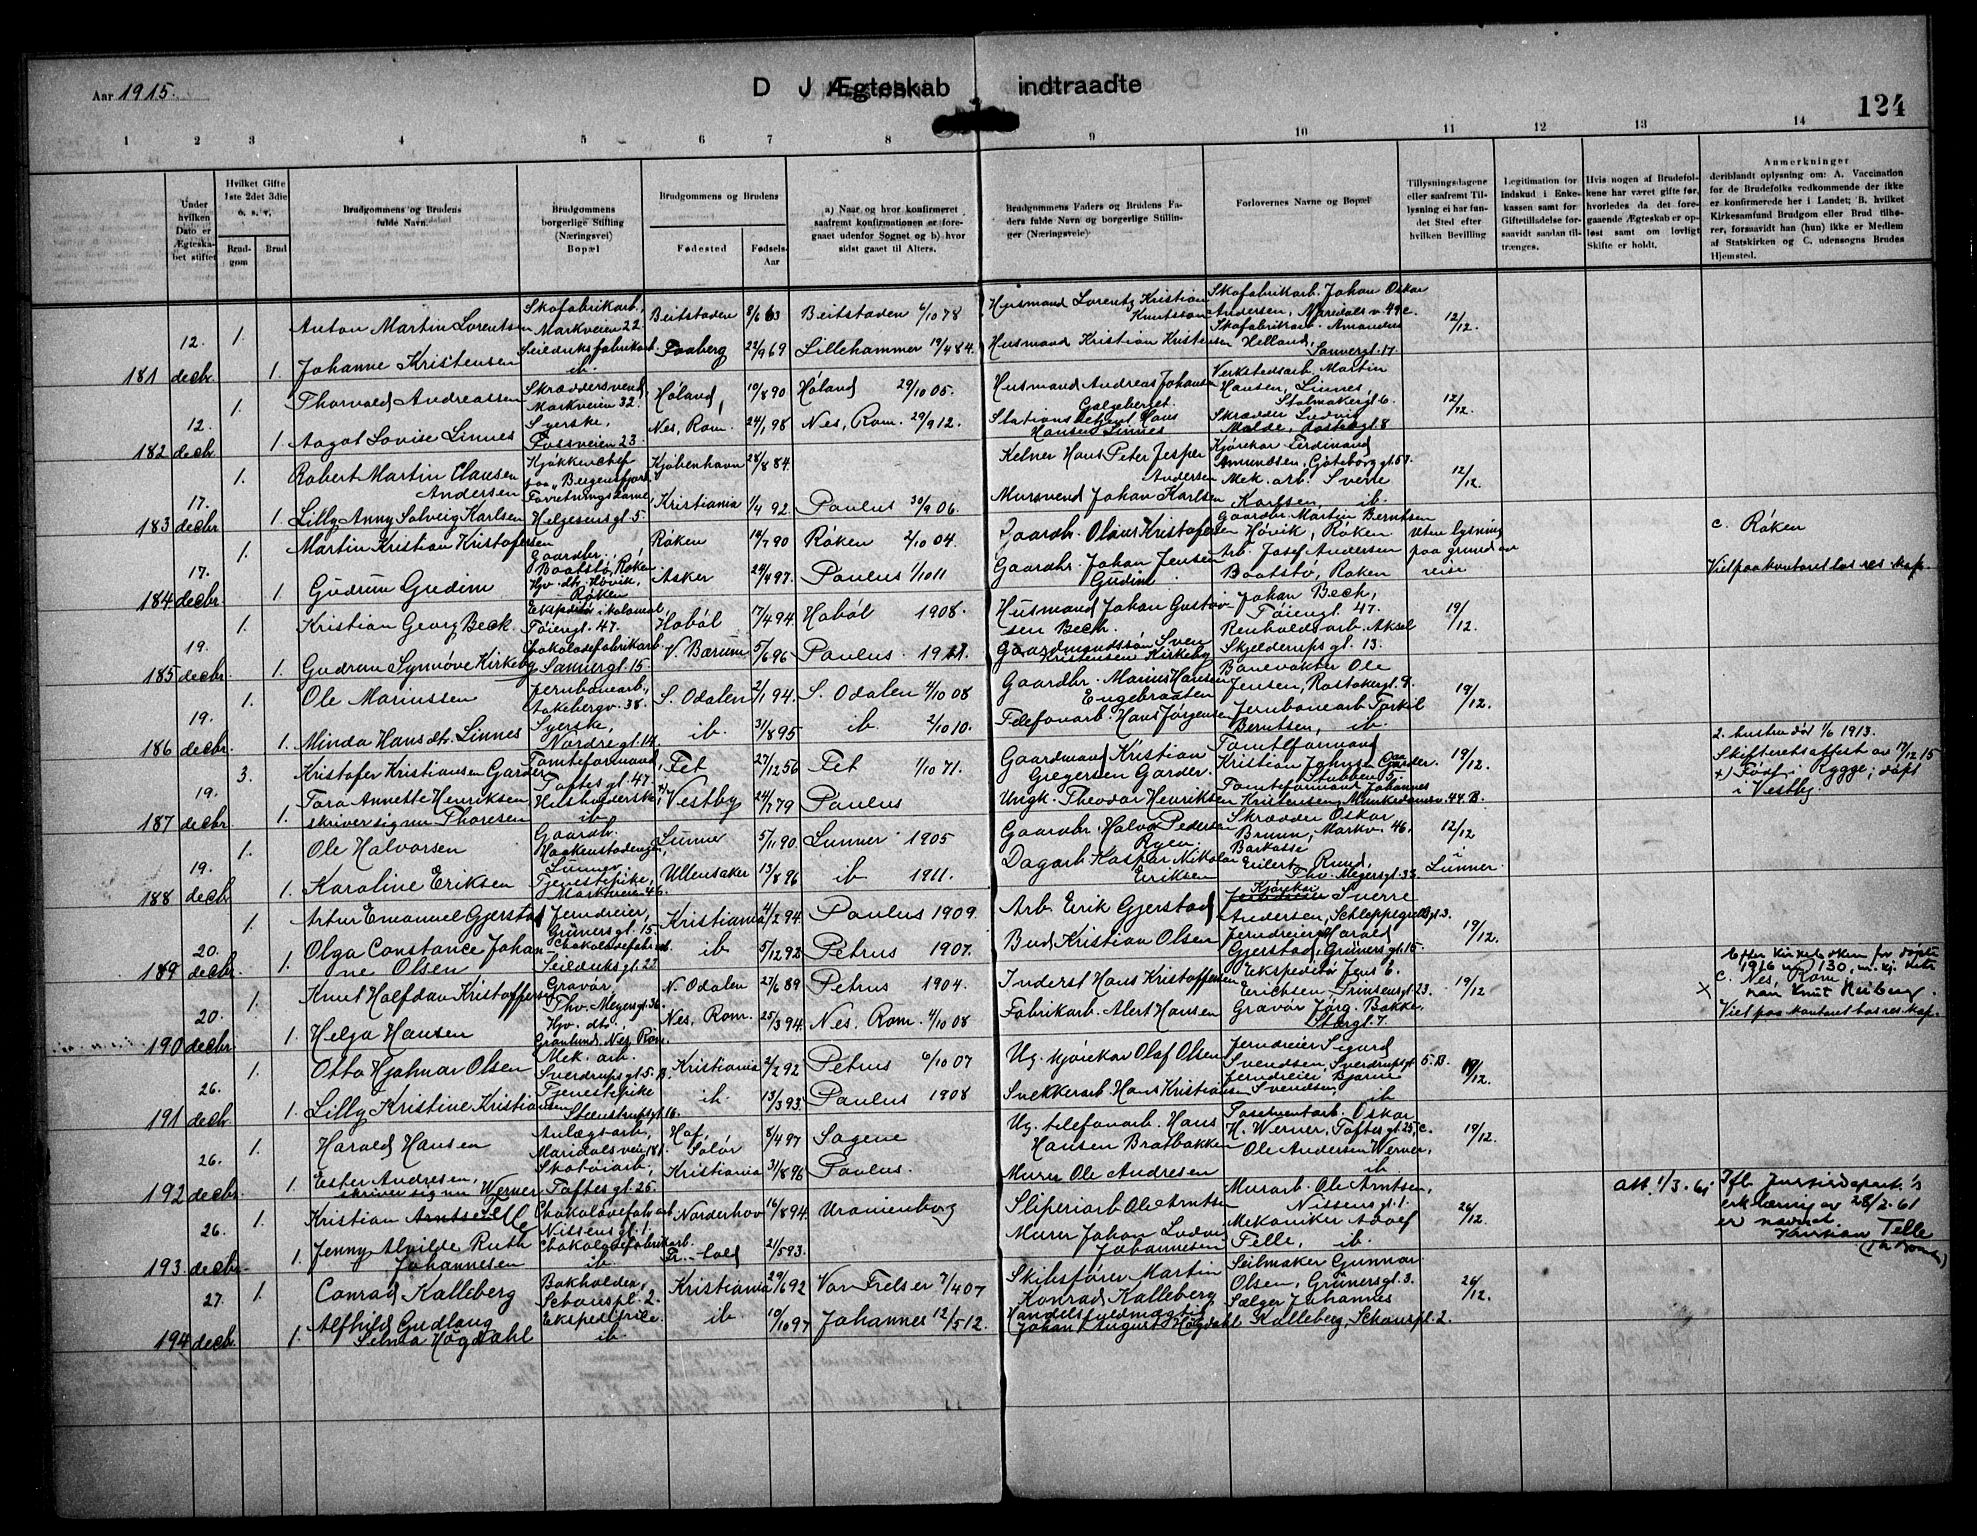 Aar 1915.
D J Ægteskab indtraadte
124
1 2 3 4 5 6 7 8 9 10 11 12 13 14
Under hvilken Dato er Ægteskabet stiftet
Hvilket Gifte 1ste 2det 3die o. s. v.
Brudgom
Brud
Brudgommens og Brudens fulde Navn.
Brudgommens borgerlige Stilling (Næringsvei) Bopæl
Brudgommens og Brudens
Fødested
Fødsels-Aar
a) Naar og hvor konfirmeret saafremt konfirmationen er foregaaet udenfor Sognet og b) hvor sidst gaaet til Alters.
Brudgommens Faders og Brudens Faders fulde Navn og borgerlige Stillinger (Næringsveie)
Forlovernes Navne og Bopæl
Tillysningsdagene eller saafremt Tillysning ei har fundet Sted efter hvilken Bevilling
Legitimation for Indskud i Enkekassen samt for Giftetilladelse forsaavidt saadan tiltrænges.
Hvis nogen af Brudefolkene har været gifte før, hvorledes da det foregaaende Ægteskab er opløst samt om lovligt Skifte er holdt.
Anmerkninger deriblandt oplysning om: A. Vaccination for de Brudefolks vedkommende der ikke er konfirmerede her i Landet; B. hvilket Kirkesamfund Brudgom eller Brud tilhører, forsaavidt han (hun) ikke er Medlem af Statskirken og C. udensogns Brudes Hjemsted.
181 12. decbr. 1. Anton Martin Lorentsen Skofabrikarb., Markveien 22 Beitstaden 8/6 63 Beitstaden 6/10 78 Husmand Lorentz Kristian Knutson Skofabrikarb. Johan Oskar Andersen, Maridalsv. 49 c. 12/12.
1. Johanne Kristensen Seildugsfabrikarb. ib. Faaberg 22/9 69 Lillehammer 19/4 84. Husmand Kristian Kristensen Skofabrikarb. Amandus Helland, Sannergt. 17
182 12. decbr 1. Thorvald Andreassen Skræddersvend, Markveien 32. Høland, 10/8 90 Høland 29/10 05. Husmand Andreas Johansen Galgeberget. Verkstedsarb. Martin Hansen, Linnes, Stolmakergt. 6. 12/12.
1 Aagot Lovise Linnes Syerske, Fossveien 23. Nes, Rom. 24/1 98 Nes, Rom. 29/9 12. Stationsbetjent Hans Hansen Linnes Skrædder Ludvig Molde, Rostedsgt. 8
183 17. decbr 1. Robert Martin Clausen Andersen Kjøkkenchef paa "Bergensfjord" Kjøbenhavn 28/8 84. Kelner Hans Peter Jesper Andersen Kjørekar Ferdinand Amundsen, Göteborggt. 57. 12/12
1. Lilly Anny Solveig Karlsen Forretningsdame, Helgesensgt. 5 Kristiania 1/4 92. Paulus 30/9 06. Mursvend Johan Karlsen Mek. arb. Sverre Karlsen, ib. c. Røken
184 17. decbr 1. Martin Kristian Kristofersen Gaardbr., Baatstø, Røken Røken 14/7 90 Røken 2/10 04. Gaardbr. Olaus Kristofersen Gaardbr. Martin Berntsen Høvik, Røken Uten lysning paa grund av reise
1 Gudrun Gudim Hv. dtr. Høvik, Røken Asker 24/4 97. Paulus 1/10 11 Gaardbr. Johan Jensen Gudim Arb. Josef Andersen Baatstø, Røken Viet paa kontoret hos res. kap.
185 19. decbr 1. Kristian Georg Beck. Ekspeditør i kolonial Tøiengt. 47. Hobøl 17/4 94 Hobøl 1908. Husmand Johan Gustavsen Beck. Johan Beck, Tøiengt. 47. 19/12.
1. Gudrun Synnøve Kirkeby Chokoladefabrikarb. Sannergt. 15. V. Bærum 5/6 96 Paulus 1911. Gaardmandssøn Sven Kristensen Kirkeby Renholdsarb. Aksel Skjelderupsgt. 13.
186 19. decbr. 1. Ole Marinussen Jernbanearb., Aakebergv. 38. S. Odalen 2/1 94. S. Odalen 4/10 08 Gaardbr. Marius Hansen Engebraaten Banevokter Ole Jensen, Rostokergt. 9. 19/12.
1. Minda Hansdtr. Linnes Syerske, Nordregt. 14. ib. 31/8 95 ib 2/10 10. Telefonarb. Hans Jørgensen Jernbanearb. Torkil Berntsen, ib.
187 19. decbr 3. Kristofer Kristiansen Garder Tomteformand, Toftesgt. 47. Fet 27/12 56 Fet 1/10 71. Gaardmand Kristian Gregersen Garder. Tomteformand Kristian Johnsen Garder. Stubben 5. 19/12. 2. hustru død 1/6 1913. Skifteretsattest av 17/12 15
1. Tora Annette Henriksen skriver sig nu Thoresen Husholderske, ib Vestby 24/7 79 Paulus Ungk. Theodor Henriksen Tomteformand Johannes Kristensen, Munkedamsv. 44 B. +) Født i Rygge; døpt i Vestby.
188 19. decbr 1. Ole Halvorsen Gaardbr. Haakenstadengen, Lunner Lunner 5/11 90. Lunner 1905 Gaardbr. Halvor Pedersen Ryen. Skrædder Oskar Bruun, Markv. 46. 12/12 i Lunner.
1. Karoline Eriksen Tjenestepike, Markveien 46. Ullensaker 13/8 96 ib 1911. Dagarb Kaspar Nikolai Eriksen Eilert Ruud, Thv. Meyersgt. 33.
189 20. decbr. 1. Artur Emanuel Gjerstad Jerndreier, Grünersgt. 15. Kristiania 4/2 94. Paulus 1909. Arb. Erik Gjerstad Kjørekar Sverre Andersen, Schleppegrellsgt. 3. 19/12.
1. Olga Constance Johanne Olsen Chokoladefabrikarb. Seildugsgt. 27 ib 5/12 92 Petrus 1907. Bud Kristian Olsen Jerndreier Harald Gjerstad, Grünersgt. 15.
190 20. decbr. 1. Knut Halfdan Kristoffersen Gravør, Thv. Meyersgt. 36. N. Odalen 27/6 89 Petrus 1904. Inderst Hans Kristoffersen Ekspeditør Jens E. Erichsen Prinsensgt. 23. 19/12 Efter kirkeboken for døpte 1916 no 130, m. kj. heter man Knut Heiberg.
1. Helga Hansen Hv. dtr. Grønlund, Nes, Rom. Nes, Rom. 25/3 94. Nes, Rom. 4/10 08 Fabrikarb. Alert Hansen Gravør Jørg. Bakke, Storgt. 7. C. Nes, Rom. Viet paa kontoret hos res. kap.
191 26. decbr. 1. Otto Hjalmar Olsen Mek. arb. Sverdrupsgt. 5. B. Kristiania 2/2 92 Petrus 6/10 07 Ug. kjørekar Olaf Olsen Jerndreier Sigurd Svendsen, Sverdrupsgt. 5. B. 19/12.
1. Lilly Kristine Kristiansen Tjenestepike Steenstrupsgt. 16. ib. 13/3 93. Paulus 1908 Snekkerarb Hans Kristiansen Jerndreier Bjarne Svendsen, ib
192 26. decbr. 1. Harald Hansen Anlægsarb., Maridalsveien 181 Hof, Solør 8/4 97 Sagene Ug. telefonarb. Hans Hansen Bratbakken Posementarb. Oskar H. Werner, Toftesgt. 25, c. 19/12.
1. Ester Andresen, skriver sig nu Werner Skotøiarb., Toftesgt. 25. Kristiania 31/8 96 Paulus. Murer Ole Andresen Ole Andersen Werner, ib
193 26. decbr. 1. Kristian Arntsen Chokoladefabrarb. Nissensgt. 1. Norderhov 16/8 94. Uranienborg Sliperiarb Ole Arntsen Murarb. Ole Arntsen, Nissensgt. 1. 26/12. Att. 1/3-61 Ifl. Justisdepart.'s erklæring av 28/2-61 er navnet Kristian Telle
1. Jenny Alvilde Ruth Johannesen Chokoladefabrikarb. ib Fr.hald 21/5 93. Murer Johan Ludvig Johannesen Mekaniker Adolf Telle, ib.
194 27. decbr. 1. Conrad Kalleberg Bokholder, Schouspl. 2. Kristiania 29/6 92 Vor Frelser 7/4 07 Skibsfører Martin Konrad Kalleberg Seilmaker Gunnar Olsen, Grünersgt. 3. 26/12.
1. Alfhild Gudlaug Selma Högdahl Ekspeditrice ib. ib 10/10 97 Johannes 12/5 12. Handelsfuldmægtig Johan August Högdahl Sælger Johannes Kalleberg, Schouspl. 2.